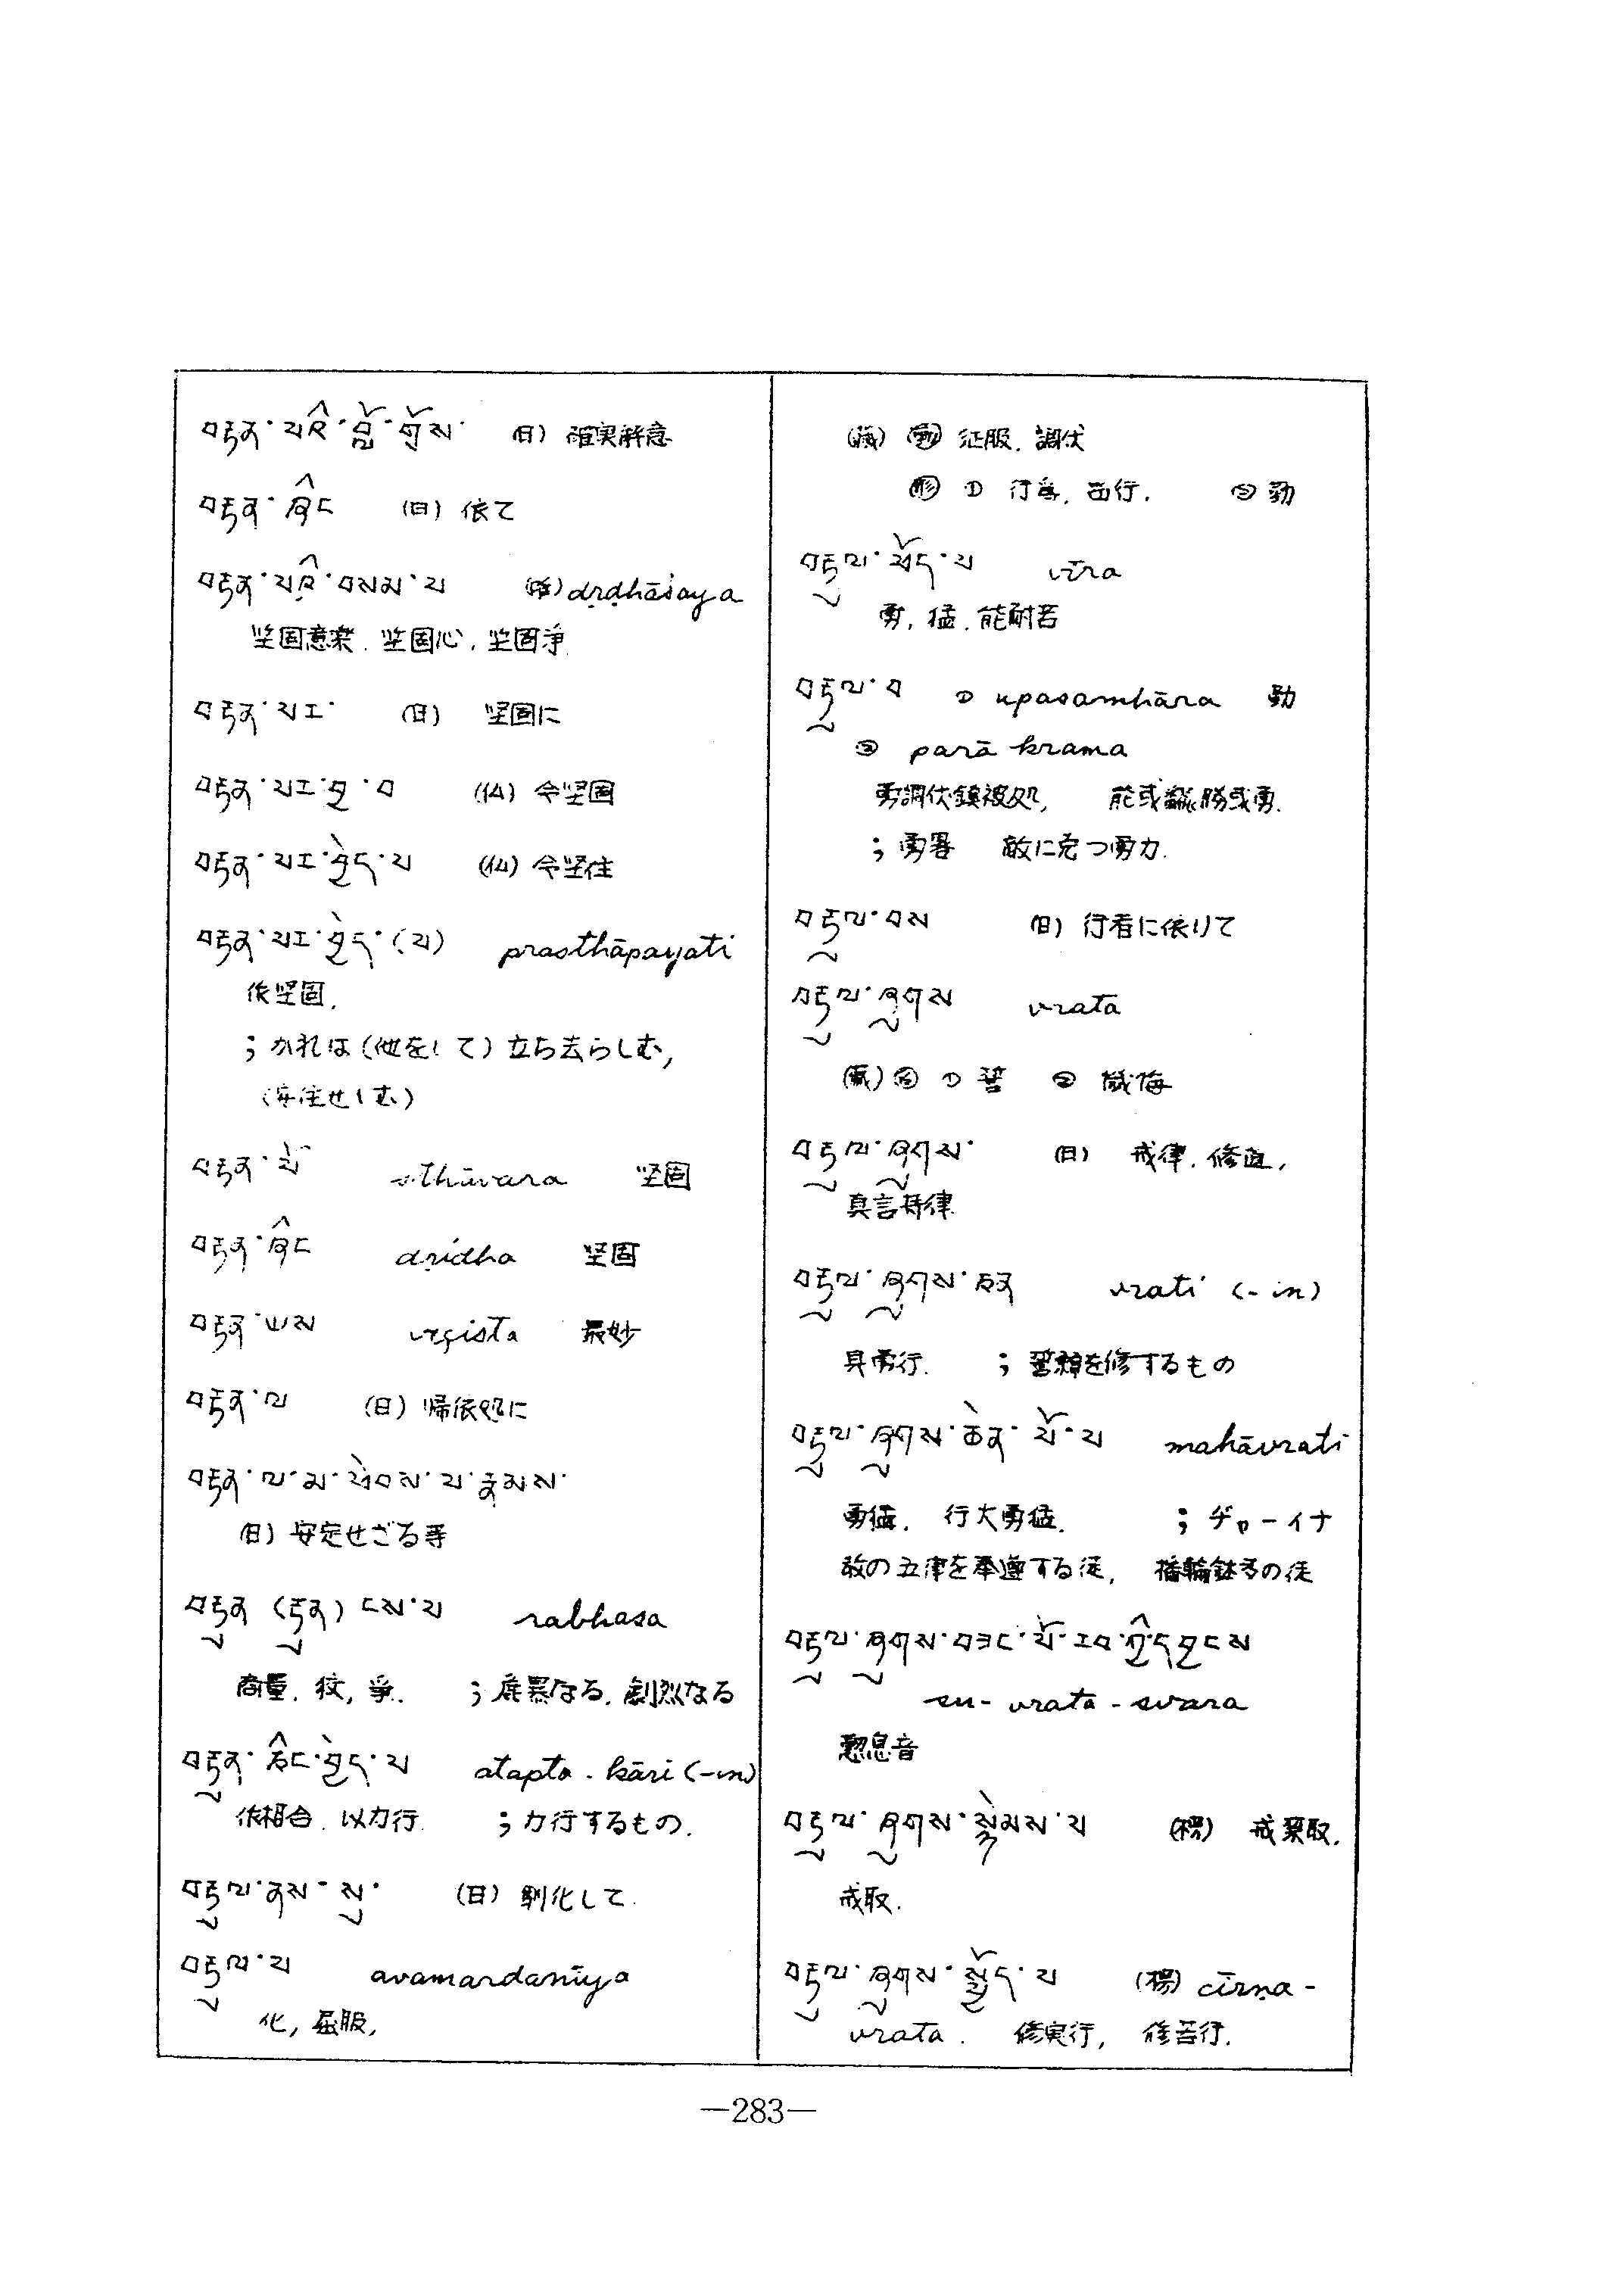 བརྟན་པའི་བློ་གྲོས་ (日) 確実解意
བརྟན་ཞིང (日) 依て
བརྟན་པའི་བསམ་པ dṛḍhāśaya
坚固意楽. 坚固心, 坚固淨
བརྟན་པར་ (日) 坚固に
བརྟན་པར་བྱ་བ (仏) 令坚固
བརྟན་པར་བྱེད་པ (仏) 令坚住
བརྟན་པར་བྱེད་(པ) prasthāpayati
依坚固.
; かれは(他をして)立ち去らしむ,
(安住せしむ)
བརྟན་པོ sthāvara 坚固
བརྟན་ཞིང dṛidha 坚固
བརྟན་ཡས 最妙
བརྟན་ལ (日) 帰依処に
བརྟན་ལ་མ་ཕེབས་པ་རྣམས་
(日) 安定せざる等
rabhasa
商量. 諍. ; なる. 劇烈なる
atapta - kāri (-in)
依相合. 以力行. ; 力行するもの.
བརྟུལ་ནས་སུ་ (日) 馴化して.
བརྟུལ་པ avamardanīya
化, 屈服,
(蔵) 征服. 調伏
① 行為. ② 勤
བརྟུལ་ཕོད་པ vīra
勇, 猛. 能耐苦
བརྟུལ་བ ① upasamhāra 勤
② parā krama
; 勇署 敵に克つ勇力.
བརྟུལ་བས (日) 行者に依りて
བརྟུལ་ཞུགས vrata
(蔵) ① 誓 ②
བརྟུལ་ཞུགས་ (日) 戒律. 修道,
真言持律
བརྟུལ་ཞུགས་ཅན vrati (-in)
具勇行. ; を修するもの
བརྟུལ་ཞུགས་ཆེན་པོ་པ mahāvrati
勇猛. 行大勇猛. ; ヂャーイナ
教の五律を奉遵する徒,
བརྟུལ་ཞུགས་བཟང་པོ་
su - vrata - svara
懃息音
བརྟུལ་ཞུགས་སྙེམས་པ (榜) 戒禁取.
戒取.
བརྟུལ་ཞུགས་སྤྱོད་པ (榜) cīrṇa -
vrata. 修実行, 修苦行.
—283—